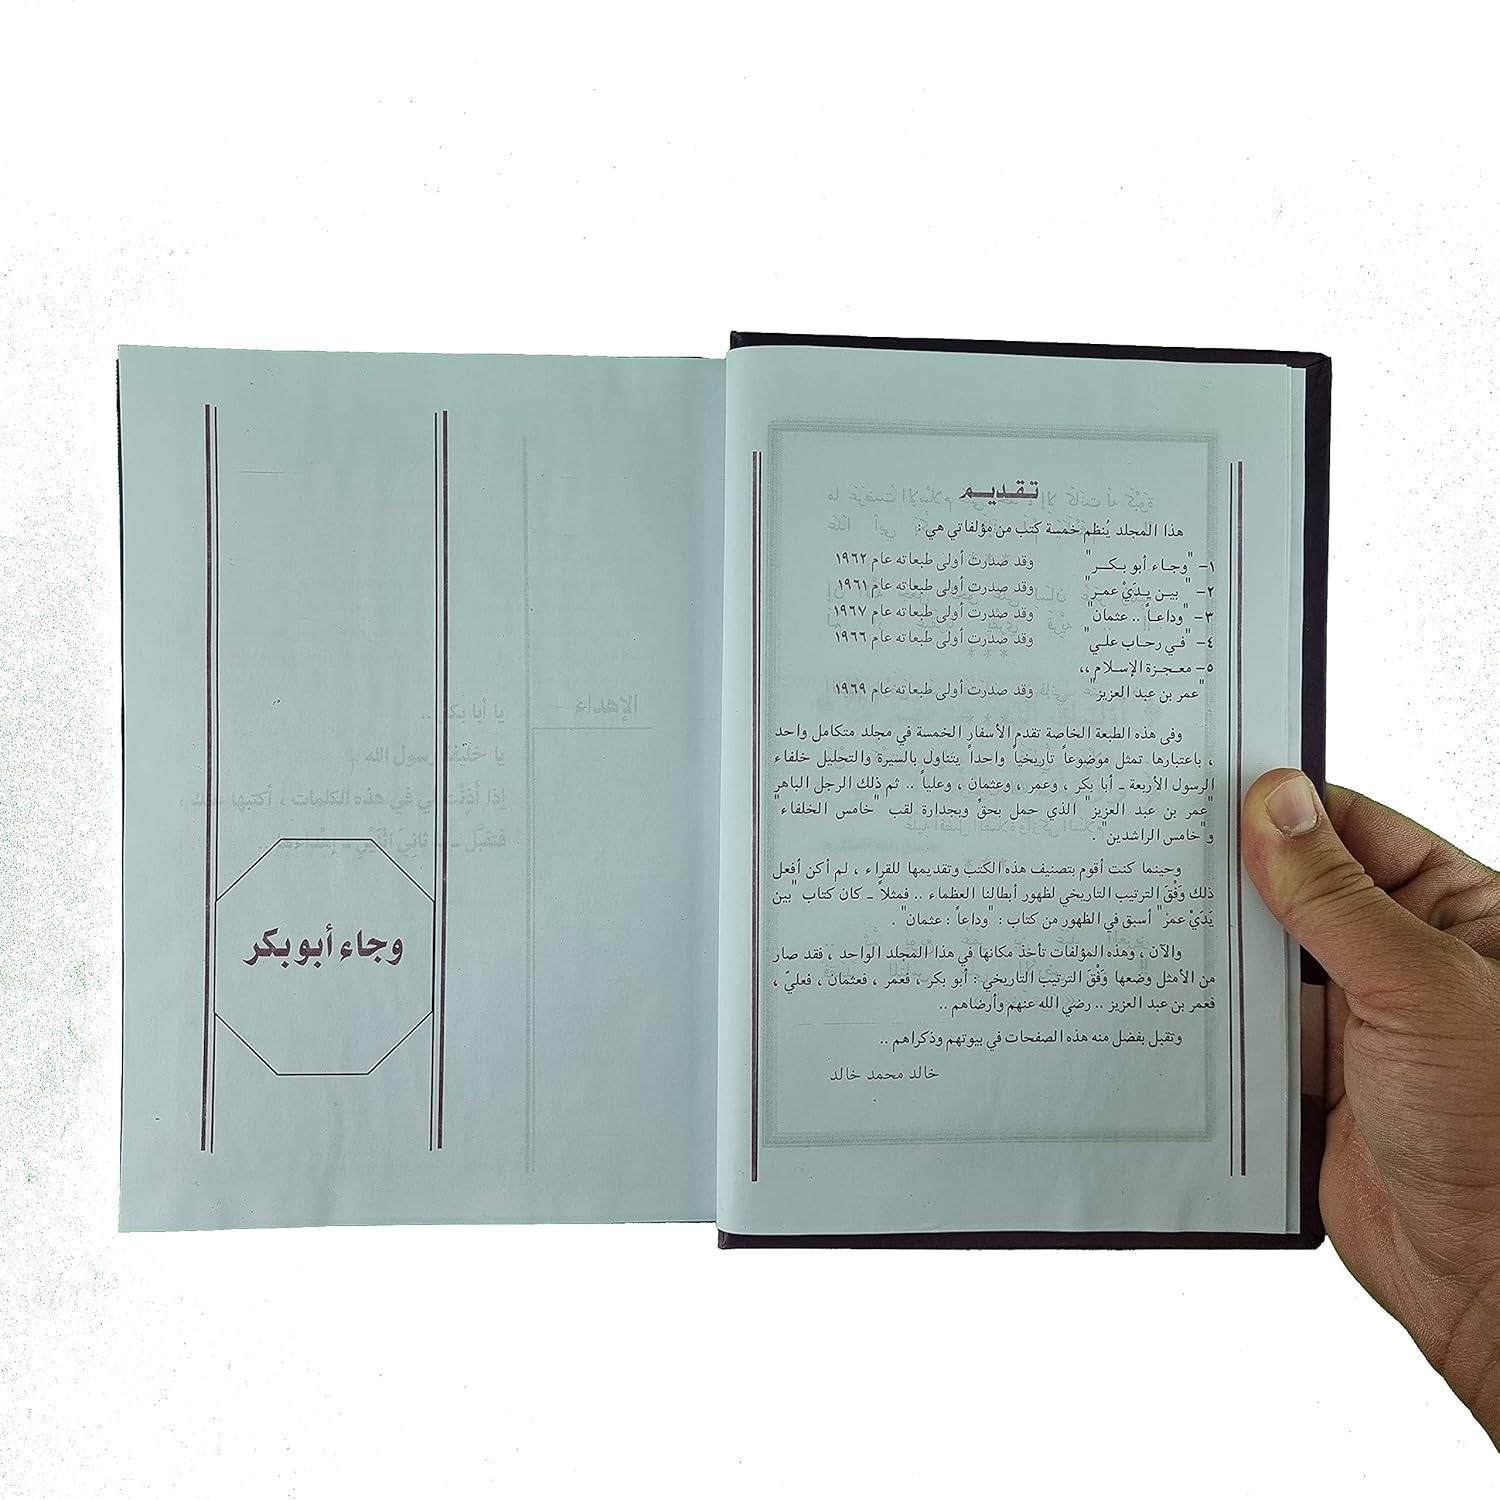 تقديم
هذا المجلد يُنظم خمسة كتب من مؤلفاتي هي :
١- "وجاء أبو بكر" وقد صدرت أولى طبعاته عام ١٩٦٢
٢- " بين يدَيْ عمرَ" وقد صدرت أولى طبعاته عام ١٩٦١
٣- "وداعاً .. عثمان" وقد صدرت أولى طبعاته عام ١٩٦٧
٤- "في رحاب علي" وقد صدرت أولى طبعاته عام ١٩٦٦
٥- معجزة الإسلام ،،
"عمر بن عبد العزيز" وقد صدرت أولى طبعاته عام ١٩٦٩
وفى هذه الطبعة الخاصة تقدم الأسفار الخمسة في مجلد متكامل واحد
، باعتبارها تمثل موضوعاً تاريخياً واحداً يتناول بالسيرة والتحليل خلفاء
الرسول الأربعة ـ أبا بكر ، وعمر ، وعثمان ، وعلياً .. ثم ذلك الرجل الباهر
"عمر بن عبد العزيز" الذي حمل بحقٍّ وبجدارة لقب "خامس الخلفاء"
و"خامس الراشدين" .
وحينما كنت أقوم بتصنيف هذه الكتب وتقديمها للقراء ، لم أكن أفعل
ذلك وَفْقَ الترتيب التاريخي لظهور أبطالنا العظماء .. فمثلاً ـ كان كتاب "بين
يَدَيْ عمرَ" أسبق في الظهور من كتاب : "وداعاً : عثمان" .
والآن ، وهذه المؤلفات تأخذ مكانها في هذا المجلد الواحد ، فقد صار
من الأمثل وضعها وَفْقَ الترتيب التاريخي : أبو بكر ، فعمر ، فعثمان ، فعليّ ،
فعمر بن عبد العزيز .. رضي الله عنهم وأرضاهم ..
وتقبل بفضل منه هذه الصفحات في بيوتهم وذكراهم ..
خالد محمد خالد
وجاء أبو بكر